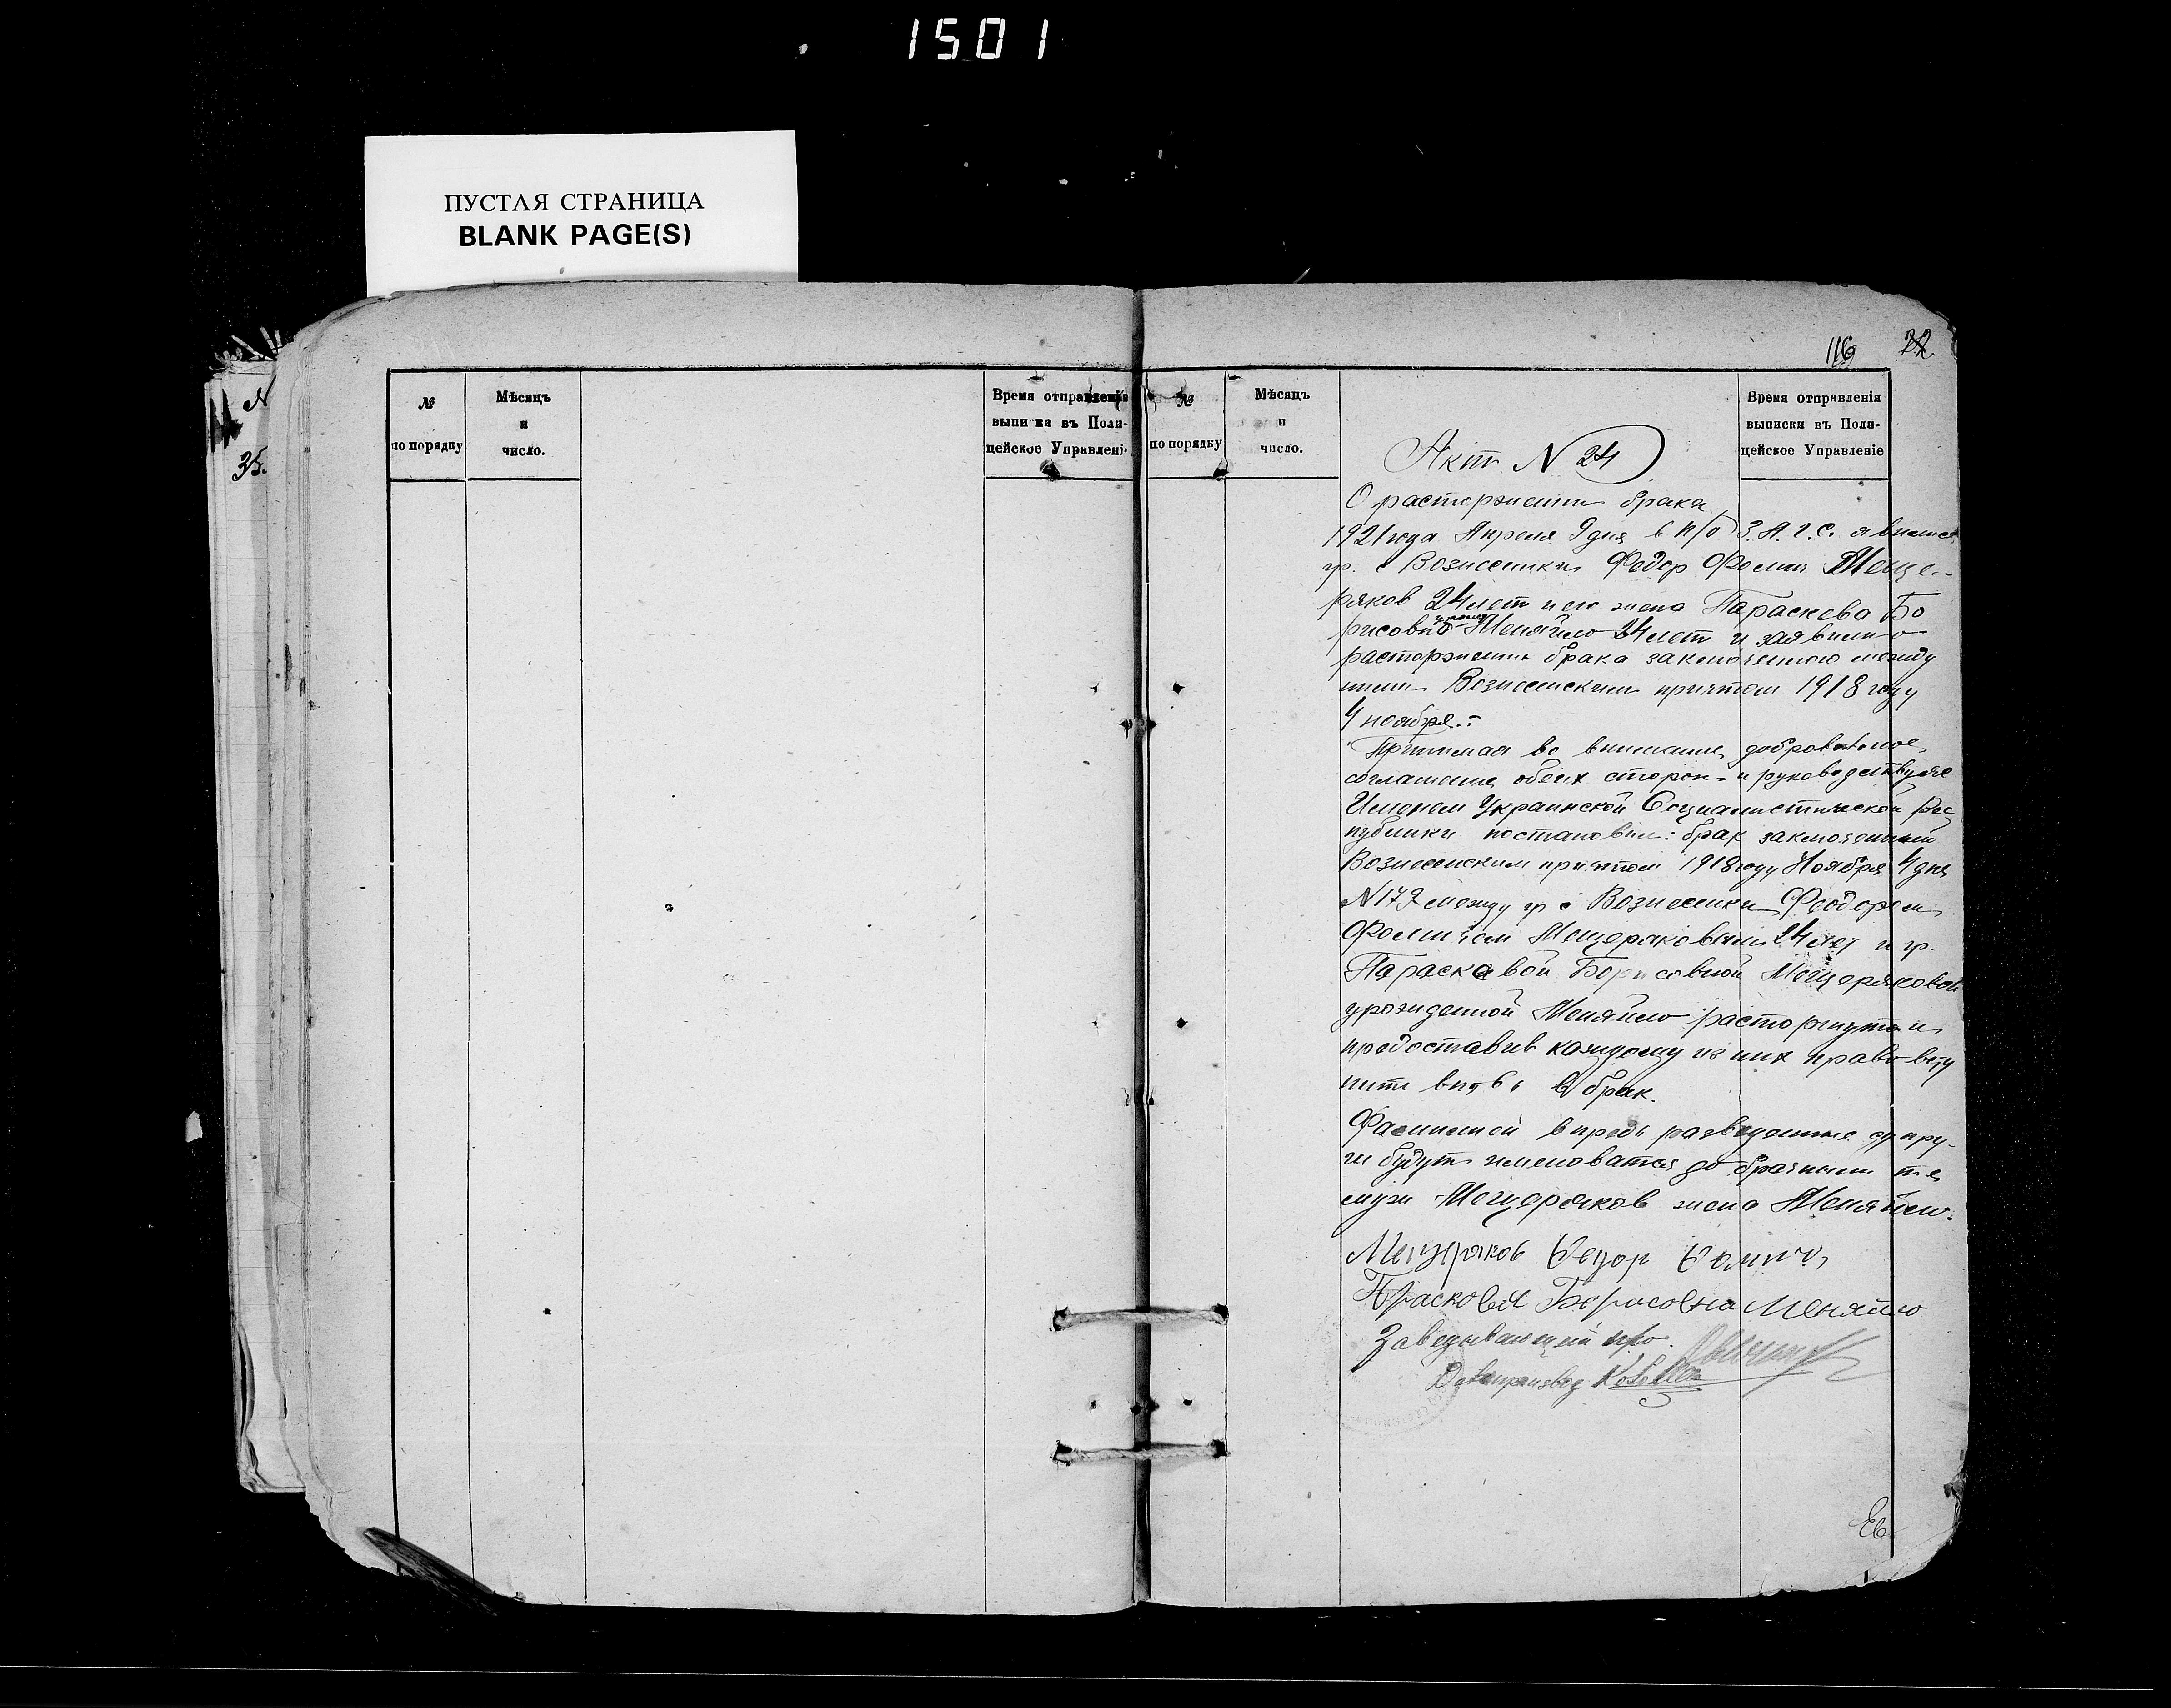 1501
ПУСТАЯ СТРАНИЦА
BLANK PAGE(S)
35.
№
по порядку
Мѣсяцъ
и
число.
Время отправленія
выписки въ Поли-
цейское Управлені
№
по порядку
Мѣсяцъ
и
число.
116 22.
Время отправленія
выписки въ Поли-
цейское Управленіе
Акт N 24
О расторжении брака
1921 года Апреля 9 дня в п/о З.А.Г.С. явились
гр. с Вознесенки Федор Фомич Меще-
ряков 24 лет и его жена Параскева Бо
рисовна Меняйло 24 лет и заявили о
расторжении брака заключенного между
ними Вознесенским причтом 1918 году
4 ноября.-
Принимая во внимание добровольное
соглашение обеих сторон и руководствуясь
Именем Украинской Социалистической Рес
публики постановил: брак заключенный
Вознесенским причтом 1918 году Ноября 4 дня
между гр с Вознесенки Феодором
Фомичем Мещеряковым 24 лет и гр.
Параскавой Борисовной Мещеряковой
урожденной Меняйло расторгнут и
предоставив каждому из них право всту
пить вновь в брак.
Фамилией впредь разведенные супру-
ги будут именоватся до брачными т е
муж Мещеряков жена Меняйло.
Мещеряков
Прасковья Борисовна Меняйло
Заведывающий п/о
Делопроизвод